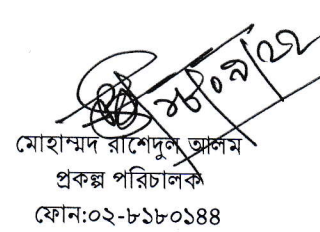 ২৮/০৯/২২
মোহাম্মদ রাশেদুল আলম
প্রকল্প পরিচালক
ফোন:০২-৮১৮০১৪৪